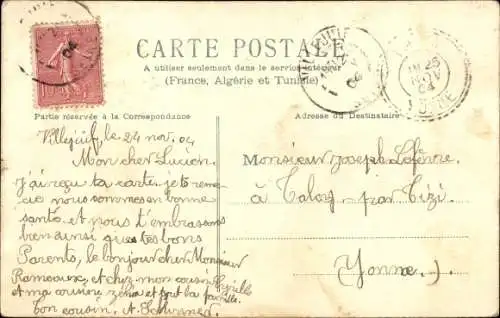 CARTE POSTALE
A utiliser seulement dans le service intérieur
(France, Algérie et Tunisie)
Partie réservée à la Correspondance
Adresse du Destinataire
Villejuif, le 24 nov. 04
Mon cher Lucien,
J'ai reçu ta carte je te reme
cie nous sommes en bonne
santé et nous t'embrassons
bien ainsi que tes bons
Parents, le bonjour cher Monsieur
Rameaux, et chez mon cousin
et ma cousine et tout la famille.
bon cousin, A.
Monsieur Joseph Lefèvre
à Taloy par
(Yonne)
25
NOV
04
10